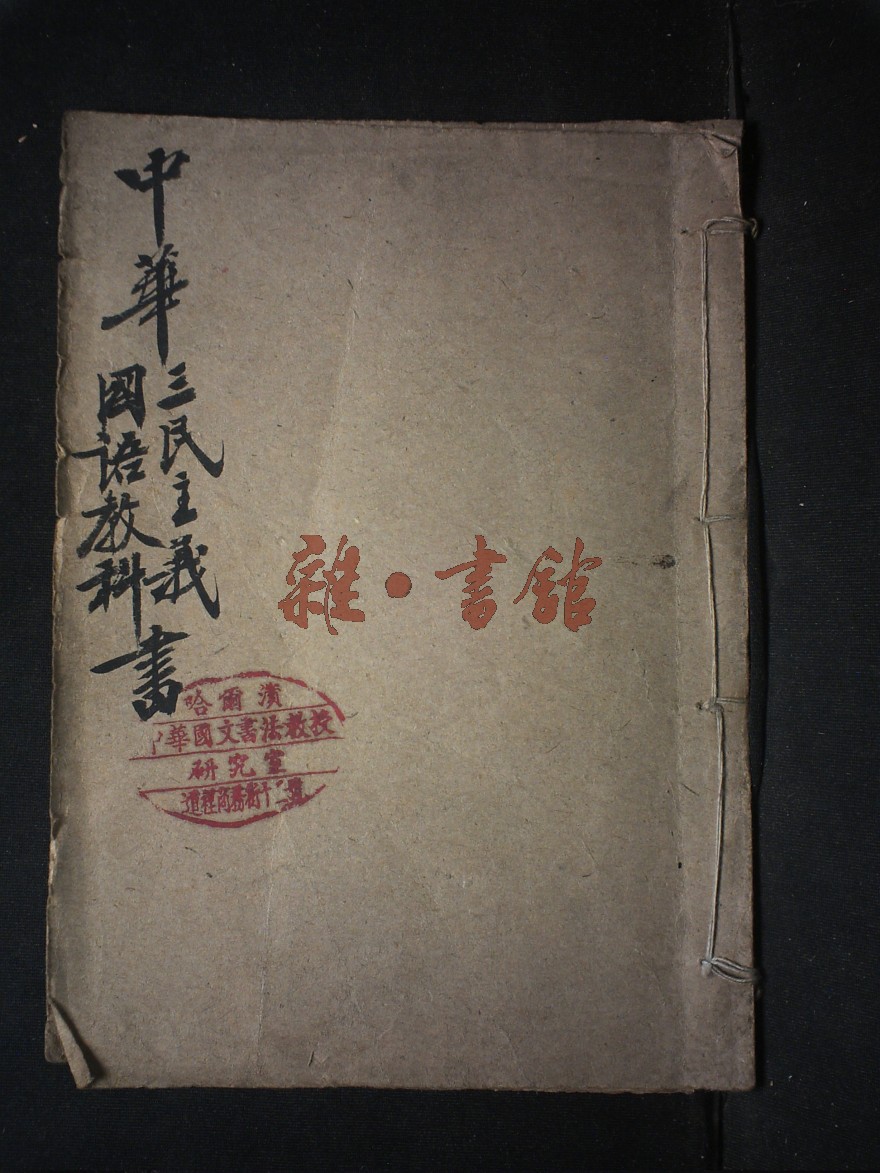 中華三民主義國語教科書
雜•書館
哈爾濱
中華國文書法教授
研究室
道裡商務街十二號